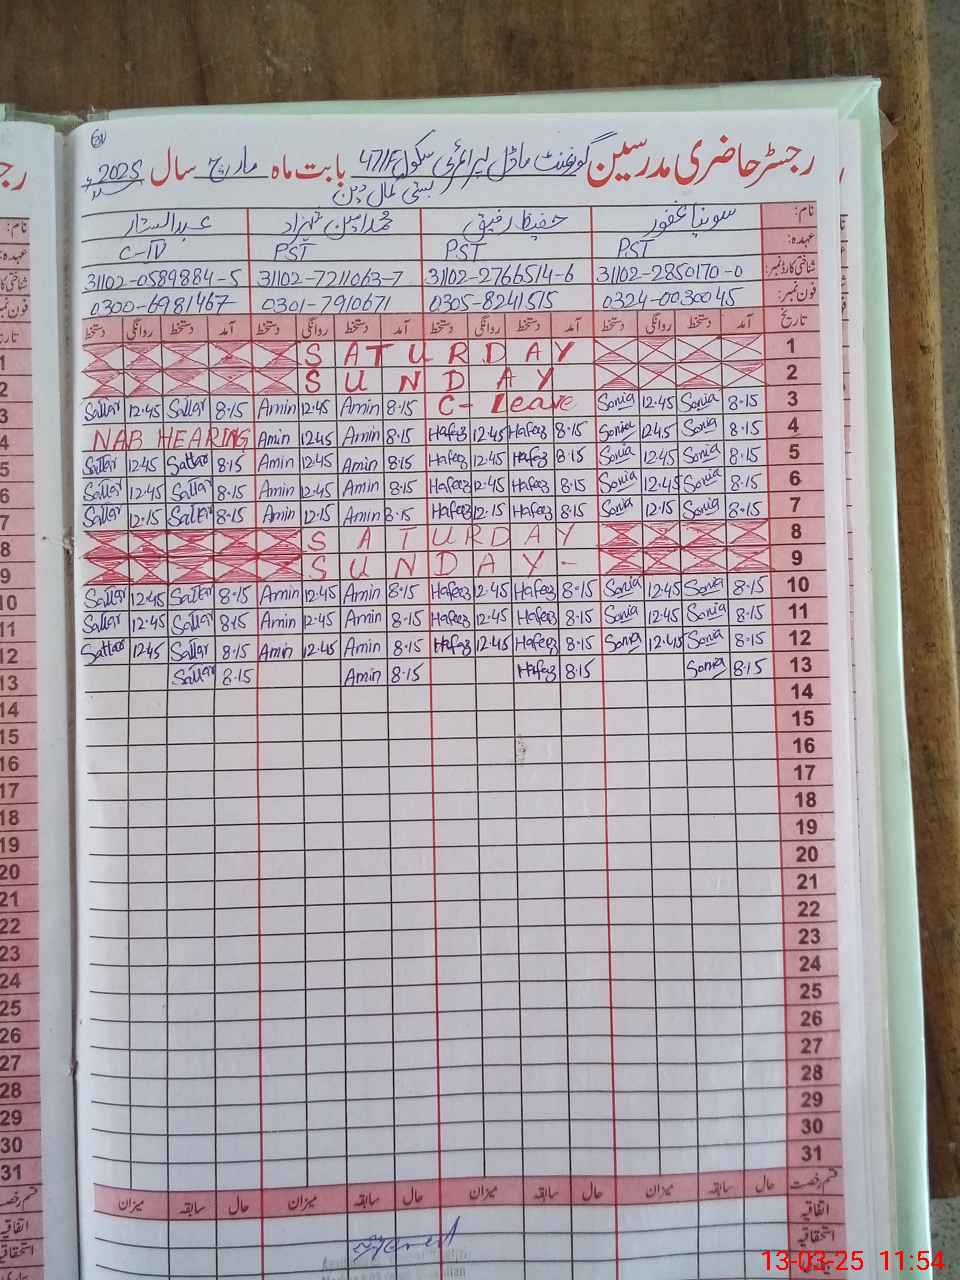 رجسٹر حاضری مدرسین گورنمنٹ ماڈل پرائمری سکول 47/F بابت ماہ مارچ سال 2025
بستی کمال دین
نام: سونیا غفور حفیظ رفیق محمد امین شہزاد عبدالستار
عہدہ: PST PST PST C-IV
شناختی کارڈ نمبر: 31102-2850170-0 31102-2766514-6 31102-7211063-7 31102-0589884-5
فون نمبر: 0324-0030045 0305-8241515 0301-7910671 0300-6981467
تاریخ آمد دستخط روانگی دستخط آمد دستخط روانگی دستخط آمد دستخط روانگی دستخط آمد دستخط روانگی دستخط
SATURDAY 1
SUNDAY 2
Sattar 12.45 Sattar 8.15 Amin 12.45 Amin 8.15 C- Leave Sonia 12.45 Sonia 8.15 3
NAB HEARING Amin 12.45 Amin 8.15 Hafeez 12.45 Hafeez 8.15 Sonia 12.45 Sonia 8.15 4
Sattar 12.45 Sattar 8.15 Amin 12.45 Amin 8.15 Hafeez 12.45 Hafeez 8.15 Sonia 12.45 Sonia 8.15 5
Sattar 12.45 Sattar 8.15 Amin 12.45 Amin 8.15 Hafeez 12.45 Hafeez 8.15 Sonia 12.45 Sonia 8.15 6
Sattar 12.15 Sattar 8.15 Amin 12.15 Amin 8.15 Hafeez 12.15 Hafeez 8.15 Sonia 12.15 Sonia 8.15 7
SATURDAY 8
SUNDAY - 9
Sattar 12.45 Sattar 8.15 Amin 12.45 Amin 8.15 Hafeez 12.45 Hafeez 8.15 Sonia 12.45 Sonia 8.15 10
Sattar 12.45 Sattar 8.15 Amin 12.45 Amin 8.15 Hafeez 12.45 Hafeez 8.15 Sonia 12.45 Sonia 8.15 11
Sattar 12.45 Sattar 8.15 Amin 12.45 Amin 8.15 Hafeez 12.45 Hafeez 8.15 Sonia 12.45 Sonia 8.15 12
Sattar 8.15 Amin 8.15 Hafeez 8.15 Sonia 8.15 13
14
15
16
17
18
19
20
21
22
23
24
25
26
27
28
29
30
31
قسم رخصت حال سابقہ میزان حال سابقہ میزان حال سابقہ میزان حال سابقہ میزان
اتفاقیہ
استحقاقیہ
13-03-25 11:54